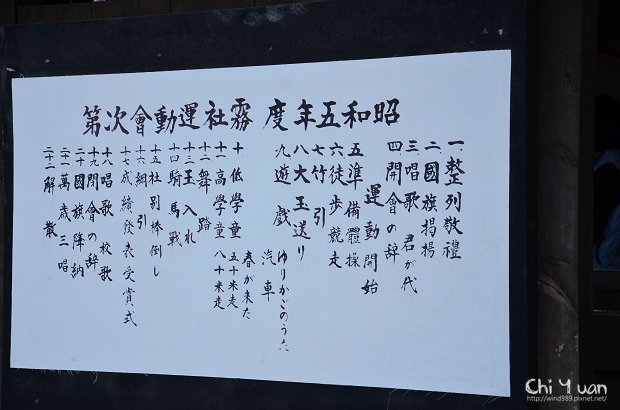 昭和五年度 霧社運動會次第
一 整列敬禮
二 國旗掲揚
三 唱歌 君が代
四 開會の辞
運動開始
五 準備體操
六 徒歩競走
七 竹引
八 大玉送り
九 遊戲 ゆりかごのうた
汽車
春が来た
十 低學童 五十米走
十一 高學童 八十米走
十二 舞踏
十三 玉入れ
十四 騎馬戰
十五 社別棒倒し
十六 綱引
十七 成績發表受賞式
十八 唱歌 校歌
十九 閉會の辞
二十 國旗降納
二十一 萬歲三唱
二十二 解散
Chi Yuan
http://wind989.pixnet.net/